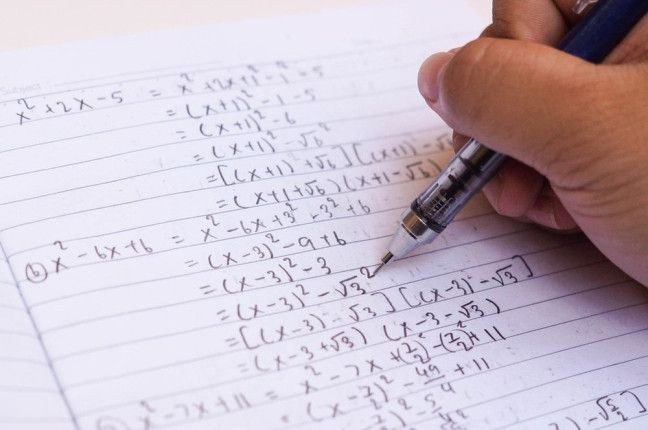 Subject
x² + 2x - 5 = x² + 2x + 1² - 1² - 5
= (x+1)² - 1 - 5
= (x+1)² - 6
= (x+1)² - √6²
= [(x+1) + √6] [(x+1) - √
= (x+1+√6) (x+1-√6)
(b) x² - 6x + 6 = x² - 6x + 3² - 3² + 6
= (x-3)² - 9 + 6
= (x-3)² - 3
= (x-3)² - √3²
= [(x-3) - √3] [(x-3) - √3]
= (x-3+√3) (x-3-√3)
x² - 7x + 11 = x² - 7x + (7/2)² - (7/2)² + 11
(x - 7/2)² - 49/4 + 11
)² - 5/4
) - √5/2]